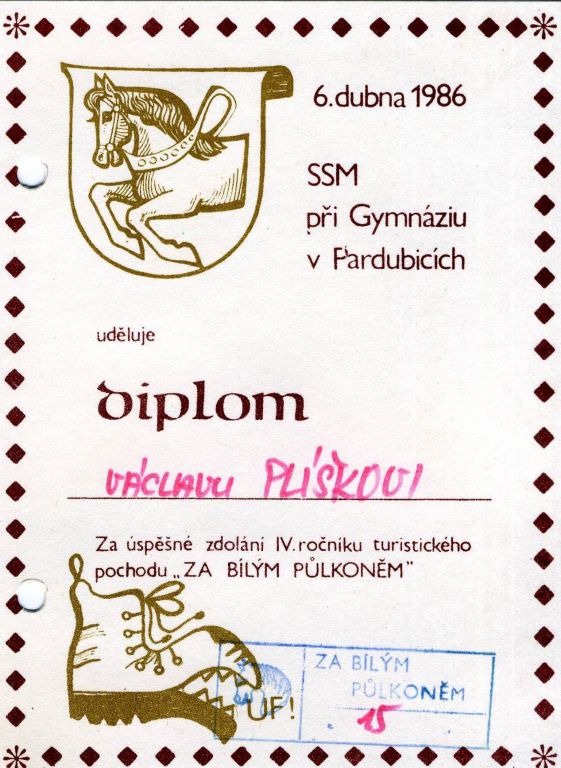 6. dubna 1986
SSM
při Gymnáziu
v Pardubicích
uděluje
diplom
VÁCLAVU PLÍŠKOVI
Za úspěšné zdolání IV. ročníku turistického
pochodu „ZA BÍLÝM PŮLKONĚM"
UF!
ZA BÍLÝM
PŮLKONĚM
15